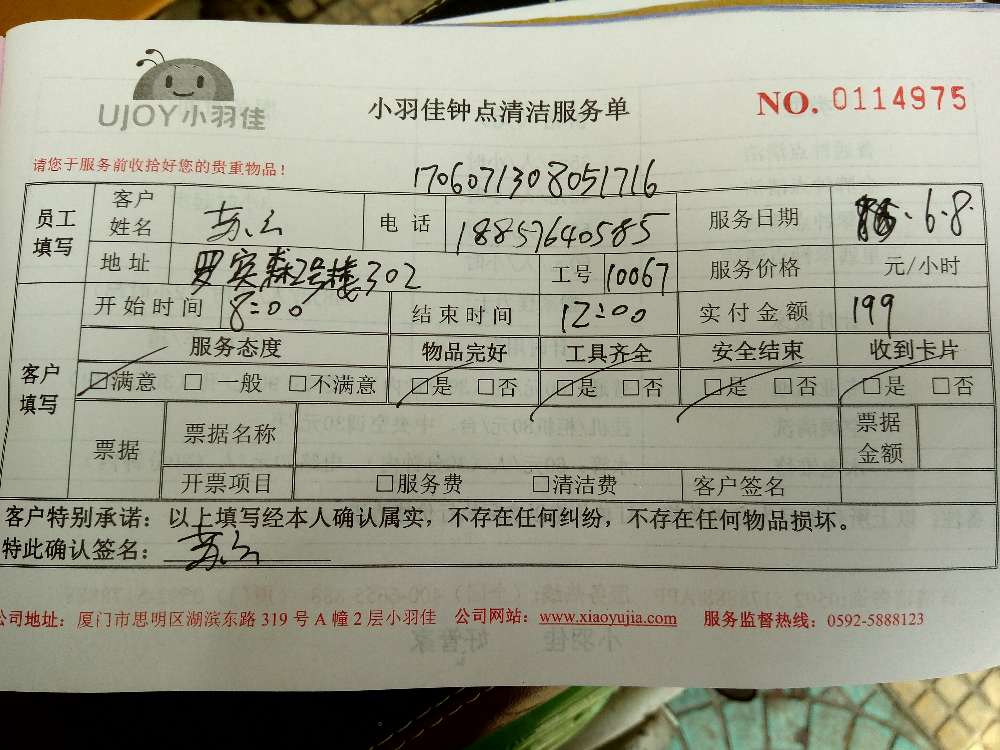 UJOY小羽佳
小羽佳钟点清洁服务单
NO. 0114975
请您于服务前收拾好您的贵重物品！
1706071308051716
员工填写 客户姓名 苏 电话 18857640585 服务日期 .6.8.
地址 罗宾森2号楼302 工号 10067 服务价格 元/小时
客户填写 开始时间 8:00 结束时间 12:00 实付金额 199
服务态度 物品完好 工具齐全 安全结束 收到卡片
□满意 □一般 □不满意 □是 □否 □是 □否 □是 □否 □是 □否
票据 票据名称 票据金额
开票项目 □服务费 □清洁费 客户签名
客户特别承诺：以上填写经本人确认属实，不存在任何纠纷，不存在任何物品损坏。
特此确认签名： 苏
公司地址：厦门市思明区湖滨东路 319 号 A 幢 2 层小羽佳 公司网站：www.xiaoyujia.com 服务监督热线：0592-5888123